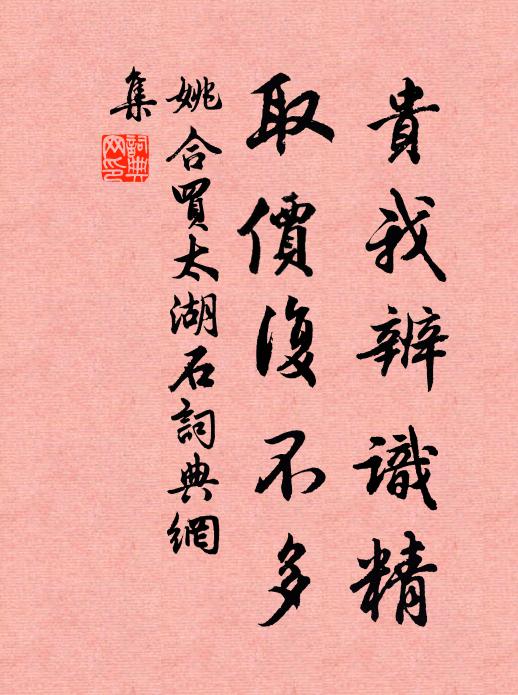 貴我辨識精
取價復不多
姚合買太湖石詞典網
集
詞典網印